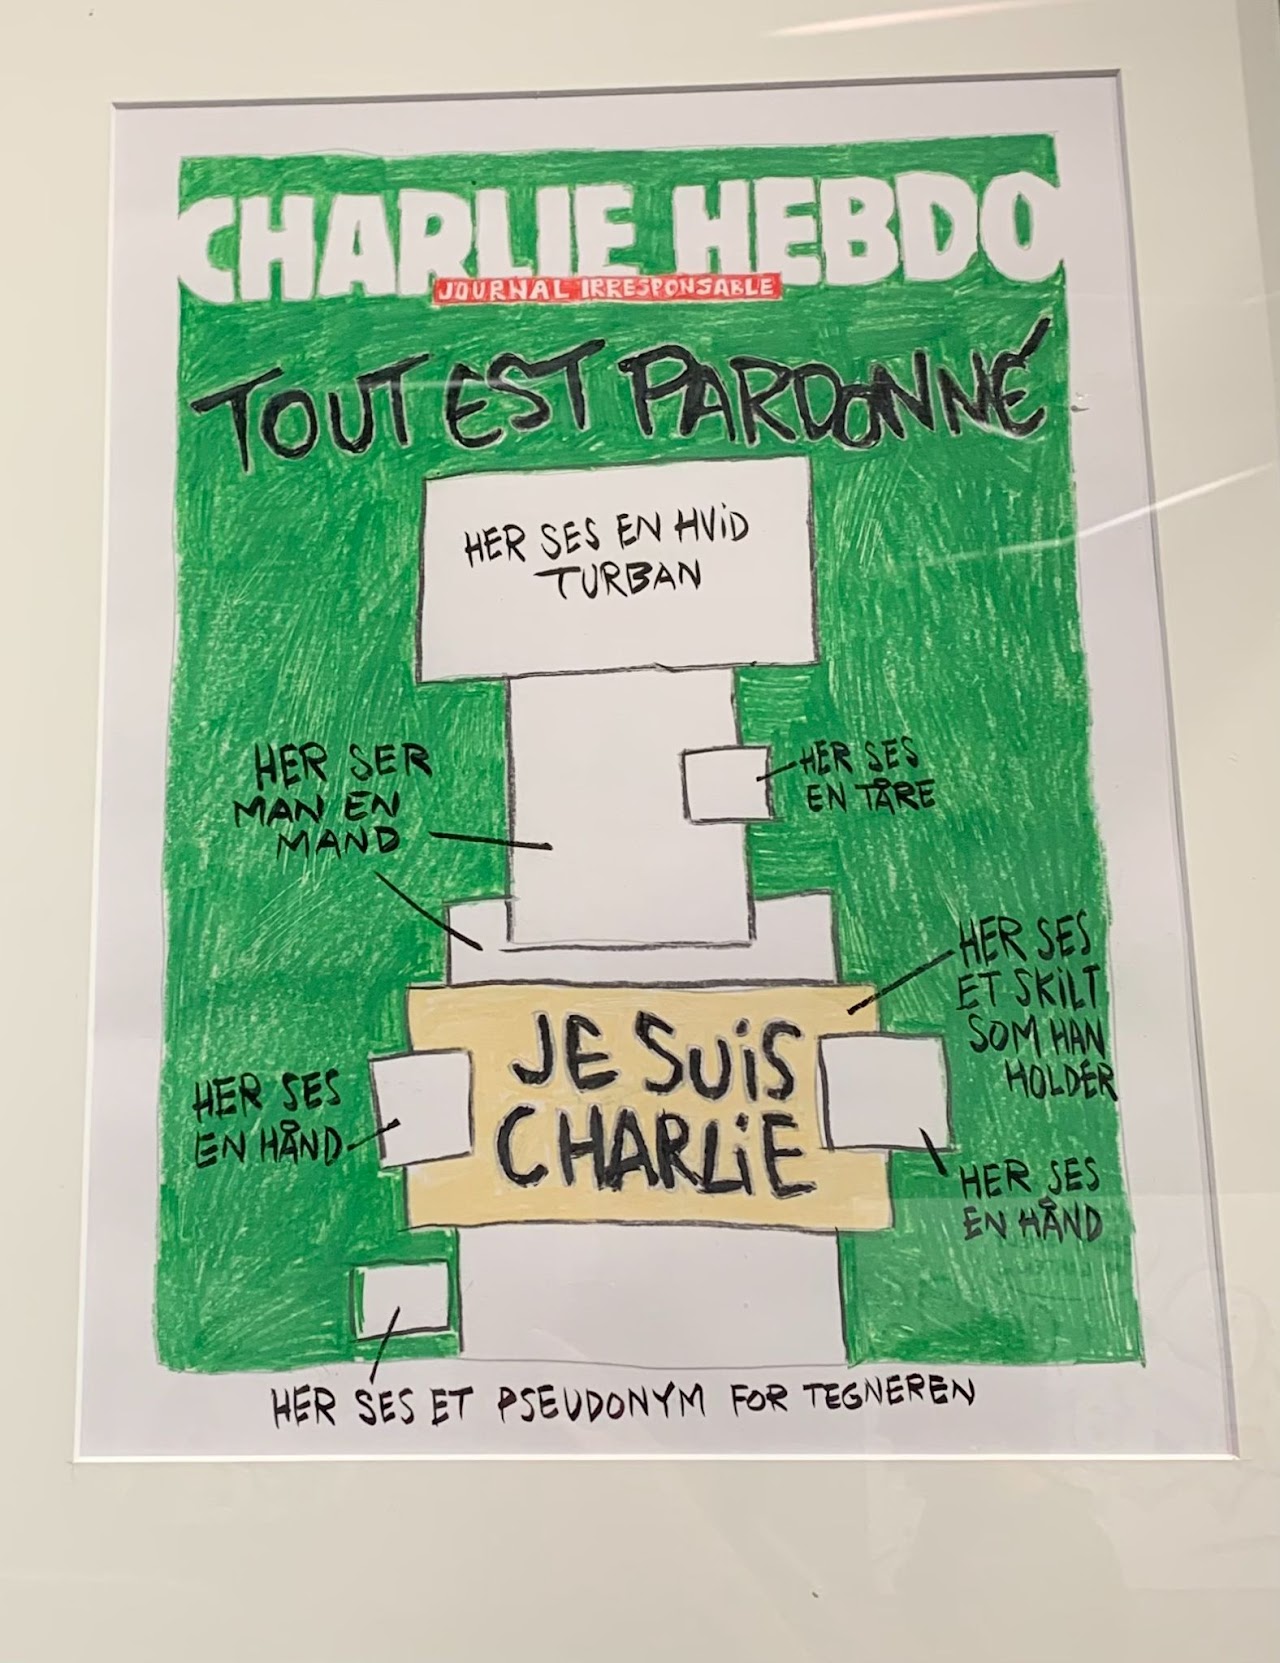 CHARLIE HEBDO
JOURNAL IRRESPONSABLE
TOUT EST PARDONNÉ
HER SES EN HVID
TURBAN
HER SER
MAN EN
MAND
HER SES
EN TÅRE
HER SES
ET SKILT
SOM HAN
HOLDER
JE SUIS
CHARLIE
HER SES
EN HÅND
HER SES
EN HÅND
HER SES ET PSEUDONYM FOR TEGNEREN